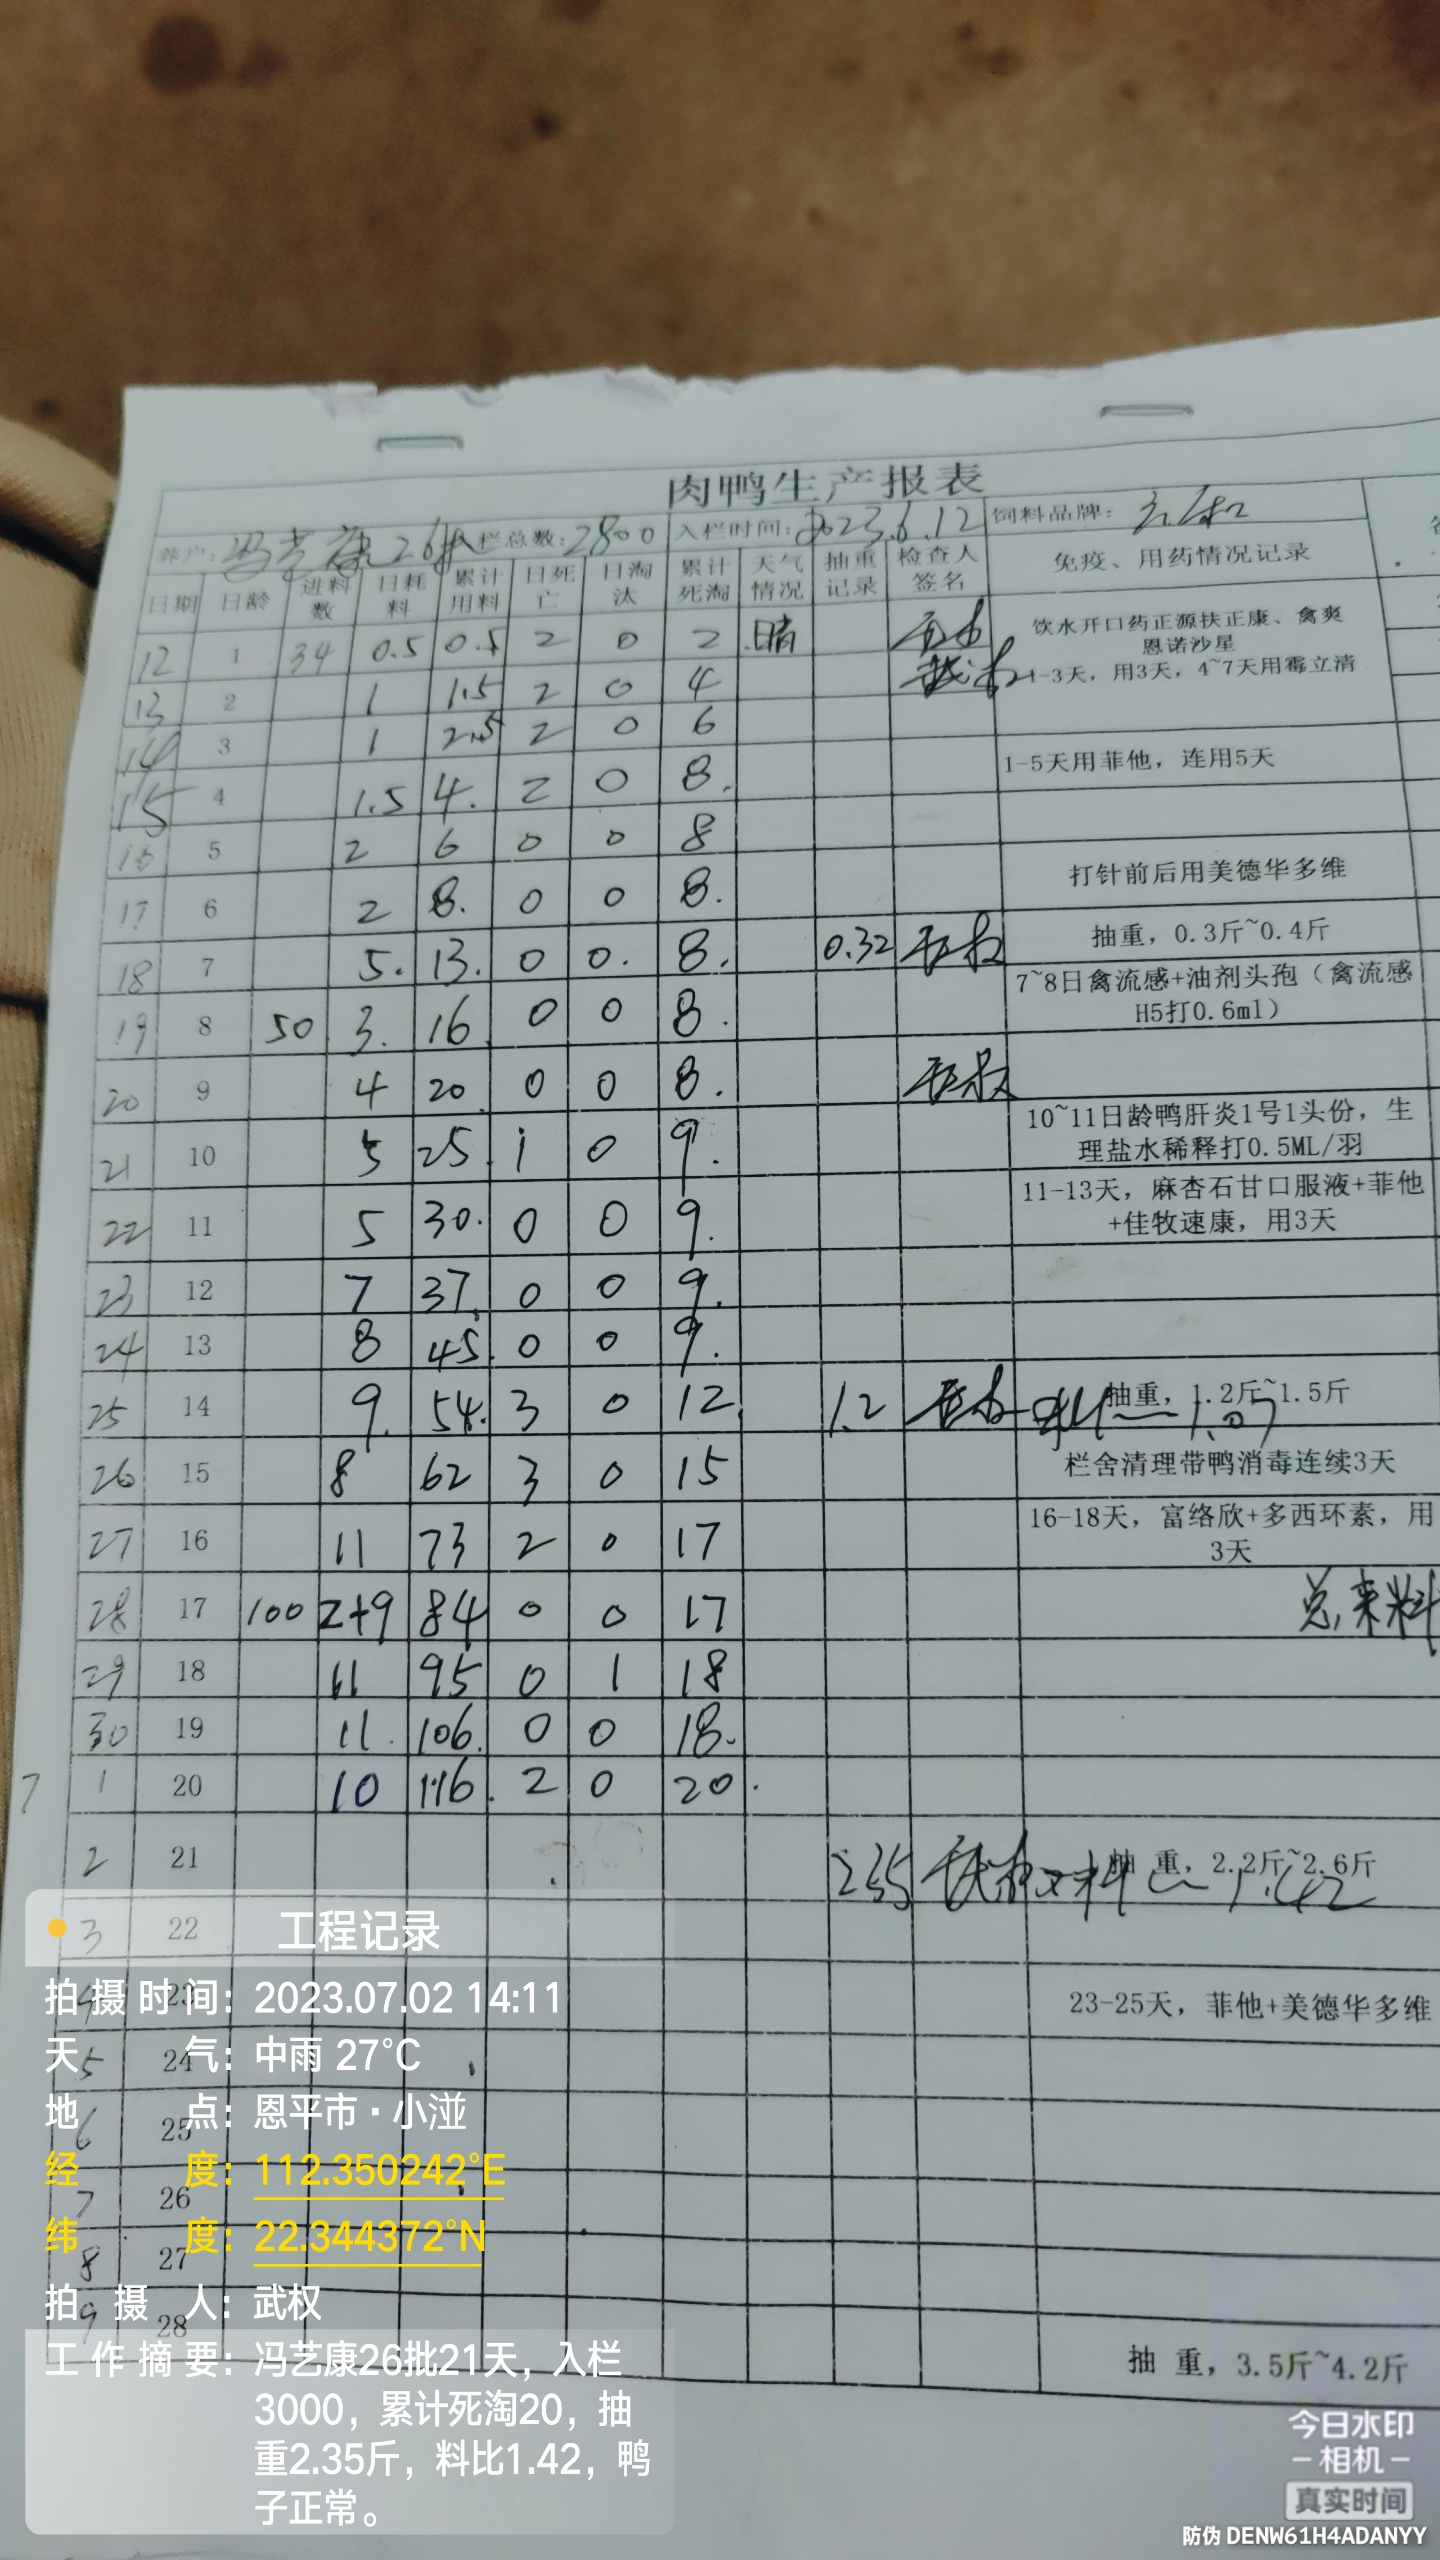 肉鸭生产报表
养户: 冯艺康26批 入栏总数: 2800 入栏时间: 2023.6.12 饲料品牌:
日期 日龄 进料数 日耗料 累计用料 日死亡 日淘汰 累计死淘 天气情况 抽重记录 检查人签名 免疫、用药情况记录
12 1 34 0.5 0.5 2 0 2 晴 饮水开口药正源扶正康、禽爽
恩诺沙星
1-3天，用3天，4~7天用霉立清
13 2 1 1.5 2 0 4
14 3 1 2.5 2 0 6
15 4 1.5 4. 2 0 8. 1-5天用菲他，连用5天
16 5 2 6 0 0 8
17 6 2 8. 0 0 8. 打针前后用美德华多维
18 7 5. 13. 0 0. 8. 0.32 抽重，0.3斤~0.4斤
19 8 50 3. 16 0 0 8. 7~8日禽流感+油剂头孢（禽流感
H5打0.6ml）
20 9 4 20. 0 0 8.
21 10 5 25. 1 0 9. 10~11日龄鸭肝炎1号1头份，生
理盐水稀释打0.5ML/羽
22 11 5 30. 0 0 9. 11-13天，麻杏石甘口服液+菲他
+佳牧速康，用3天
23 12 7 37. 0 0 9.
24 13 8 45. 0 0 9.
25 14 9. 54. 3 0 12. 1.2 抽重，1.2斤~1.5斤 1.07
26 15 8 62 3 0 15 栏舍清理带鸭消毒连续3天
27 16 11 73 2 0 17 16-18天，富络欣+多西环素，用
3天
28 17 100 2+9 84 0 0 17 总来料
29 18 11 95 0 1 18
30 19 11. 106. 0 0 18.
7 1 20 10 116. 2 0 20.
2 21 2.35 抽 重，2.2斤~2.6斤 料比 1.42
3 22
4 23 23-25天，菲他+美德华多维
5 24
6 25
7 26
8 27
9 28 抽 重，3.5斤~4.2斤
工程记录
拍摄时间: 2023.07.02 14:11
天 气: 中雨 27°C
地 点: 恩平市·小湴
经 度: 112.350242°E
纬 度: 22.344372°N
拍 摄 人: 武权
工作摘要: 冯艺康26批21天，入栏
3000，累计死淘20，抽
重2.35斤，料比1.42，鸭
子正常。
今日水印
-相机-
真实时间
防伪 DENW61H4ADANYY